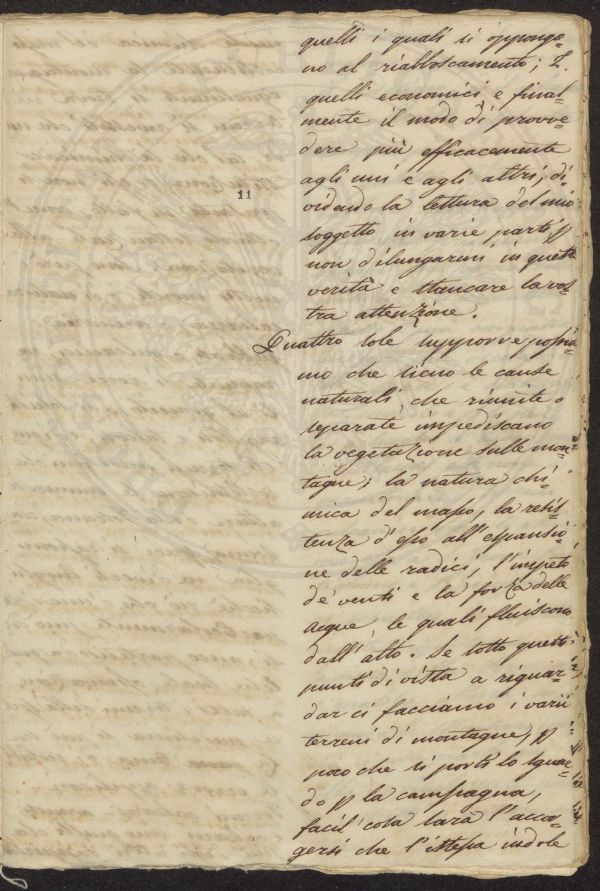 quelli i quali si oppongo-
no al riabboscamento; 2.
quelli economici e final-
mente il modo di provve-
dere più efficacemente
agli uni e agli altri; di-
videndo la lettura del mio
soggetto in varie parti p
non dilungarmi in queste
verità e stancare la vos-
tra attenzione.
11
Quattro sole supporre possia-
mo che sieno le cause
naturali, che riunite o
separate impediscano
la vegetazione sulle mon-
tagne; la natura chi-
mica del masso, la resis-
tenza d'esso all'espansio-
ne delle radici, l'impeto
de' venti e la forza delle
acque, le quali fluiscono
dall'alto. Se sotto questi
punti di vista a riguar-
dar ci facciamo i varii
terreni di montagne, p
poco che si porti lo sguar-
do p la campagna,
facil cosa sarà l'accor-
gersi che l'istessa indole